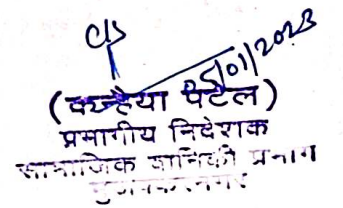 25/01/2023
(कन्हैया पटेल)
प्रभागीय निदेशक
सामाजिक वानिकी प्रभाग
मुजफ्फरनगर